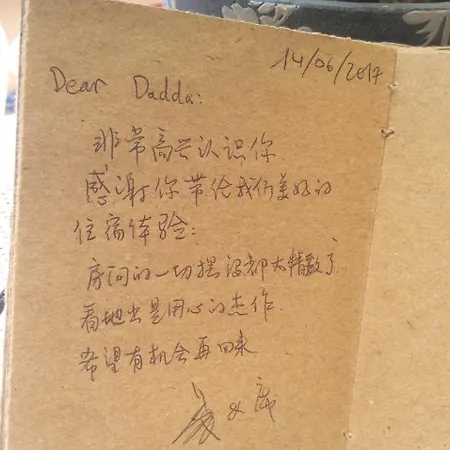 14/06/2017
Dear Dadda:
非常高兴认识你
感谢你带给我们美好的
住宿体验:
房间的一切摆设都太精致了
看地出是用心的杰作.
希望有机会再回来